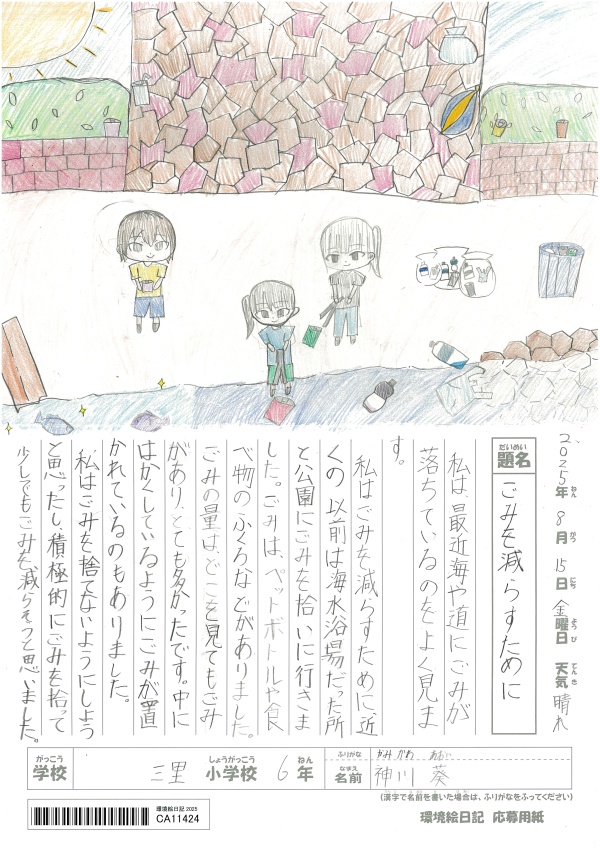 2025年 8月 15日 金曜日 天気 晴れ
ねん がつ にち ようび てんき
だいめい
題名
ごみを減らすために
私は、最近海や道にごみが
落ちているのをよく見ま
す。
私はごみを減らすために、近
くの以前は海水浴場だった所
と公園にごみを拾いに行きま
した。ごみは、ペットボトルや食
べ物のふくろなどがありました。
ごみの量は、どこを見てもごみ
があり、とても多かったです。中に
はかくしているようにごみが置
かれているのもありました。
私はごみを捨てないようにしよう
と思ったし、積極的にごみを拾って
少しでもごみを減らそうと思いました。
がっこう しょうがっこう ねん
学校 三里 小学校 6年
ふりがな かみかわ あおい
なまえ
名前 神川 葵
(漢字で名前を書いた場合は、ふりがなをふってください)
環境絵日記2025
CA11424
環境絵日記 応募用紙